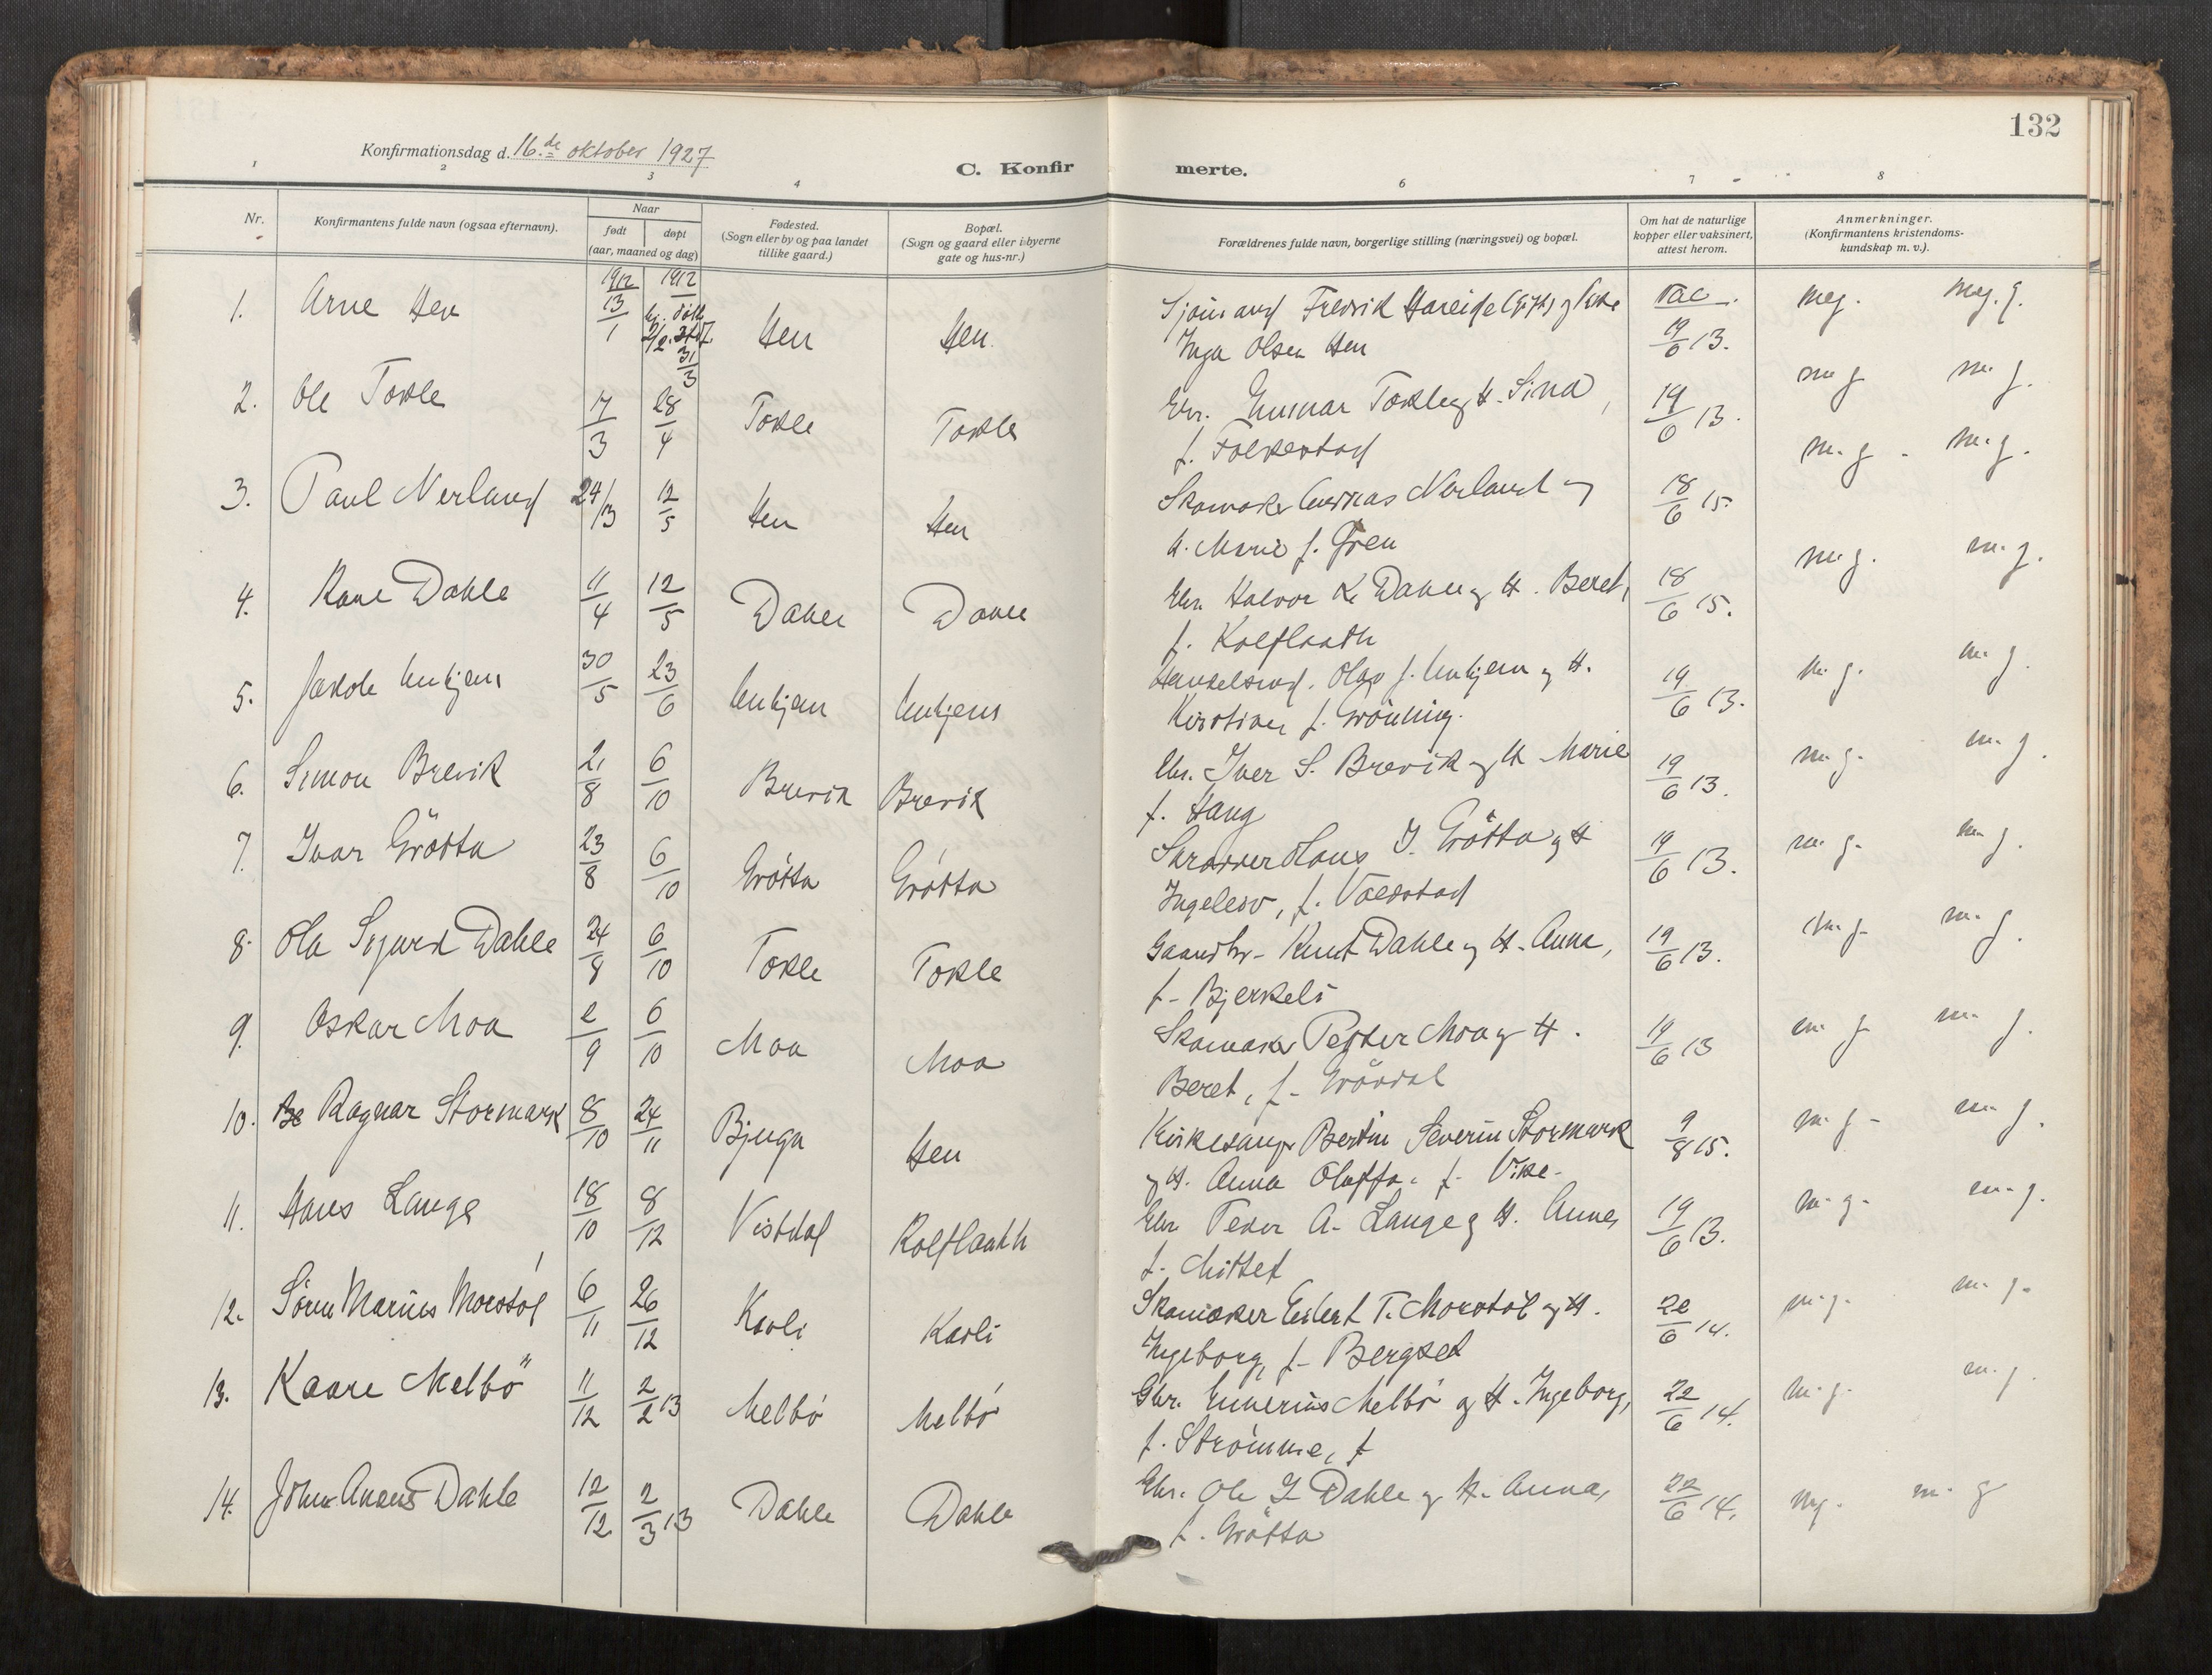 132
Konfirmationsdag d. 16.de oktober 1927
C. Konfirmerte.
1 2 3 4 6 7 8
Nr.
Konfirmantens fulde navn (ogsaa efternavn).
Naar
født døpt
(aar, maaned og dag)
Fødested.
(Sogn eller by og paa landet
tillike gaard.)
Bopæl.
(Sogn og gaard eller i byerne
gate og hus-nr.)
Forældrenes fulde navn, borgerlige stilling (næringsvei) og bopæl.
Om hat de naturlige
kopper eller vaksinert,
attest herom.
Anmerkninger.
(Konfirmantens kristendoms-
kundskap m. v.).
1. Arne Hen 1912 13/1 1912 31/3 Hen Hen Fredrik Hareide (gift) og vac. meg. meg. g.
Inga Olsen Hen 19/6 13.
2. Ole Tokle 17/3 28/4 Tokle Tokle Gbr. Gunnar Tokle og H. Sina, 19/6 13. m. g. m. g.
f. Folkestad
3. Paul Nerland 24/13 12/5 Hen Hen Skomaker Nerland og 18/6 15. m. g. m. g.
H. Marie f. Gren
4. Kaare Dahle 11/4 12/5 Dahle Dahle Gbr. Halvor K. Dahle og H. Beret, 18/6 15. m. g. m. g.
f. Kolflaath
5. Jakob Unhjem 30/5 23/6 Unhjem Unhjem Handelsmd. Olav J. Unhjem og H. 19/6 13. m. g. m. g.
Kirstine f. Grønning.
6. Simon Brevik 21/8 6/10 Brevik Brevik Gbr. Iver S. Brevik og H. Marie 19/6 13. m. g. m. g.
f. Haug
7. Ivar Grötta 23/8 6/10 Grötta Grötta Skrædder Hans I. Grötta og H. 19/6 13. m. g. m. g.
Ingeleiv, f. Voldstad
8. Ola Sigurd Dahle 24/8 6/10 Tokle Tokle Gaardbr. Knut Dahle og H. Anna, 19/6 13. m. g. m. g.
f. Bjerkeli
9. Oskar Moa 2/9 6/10 Moa Moa Skomaker Petter Moa og H. 19/6 13 m. g. m. g.
Beret, f. Grövdal
10. Ragnar Stormark 8/10 24/11 Bjugn Hen Kirkesanger Bertin Severin Stormark 9/8 15. m. g. m. g.
og H. Anna Oluffa, f. Vike.
11. Hans Lange 18/10 8/12 Vistdal Kolflaath Gbr. Peder A. Lange og H. Anne, 19/6 13. m. g. m. g.
f. Mittet
12. Sören Marius Morstøl 6/11 26/12 Kavli Kavli Skomaker Eilert T. Morstøl og H. 20/6 14. m. g. m. g.
Ingeborg, f. Bergset
13. Kaare Melbö 11/12 2/2 13 Melbö Melbö Gbr. Melbö og H. Ingeborg, 22/6 14. m. g. m. g.
f. Strömme, f
14. John Anders Dahle 12/12 2/3 13 Dahle Dahle Gbr. Ole I. Dahle og H. Anna, 22/6 14. m. g. m. g.
f. Grötta